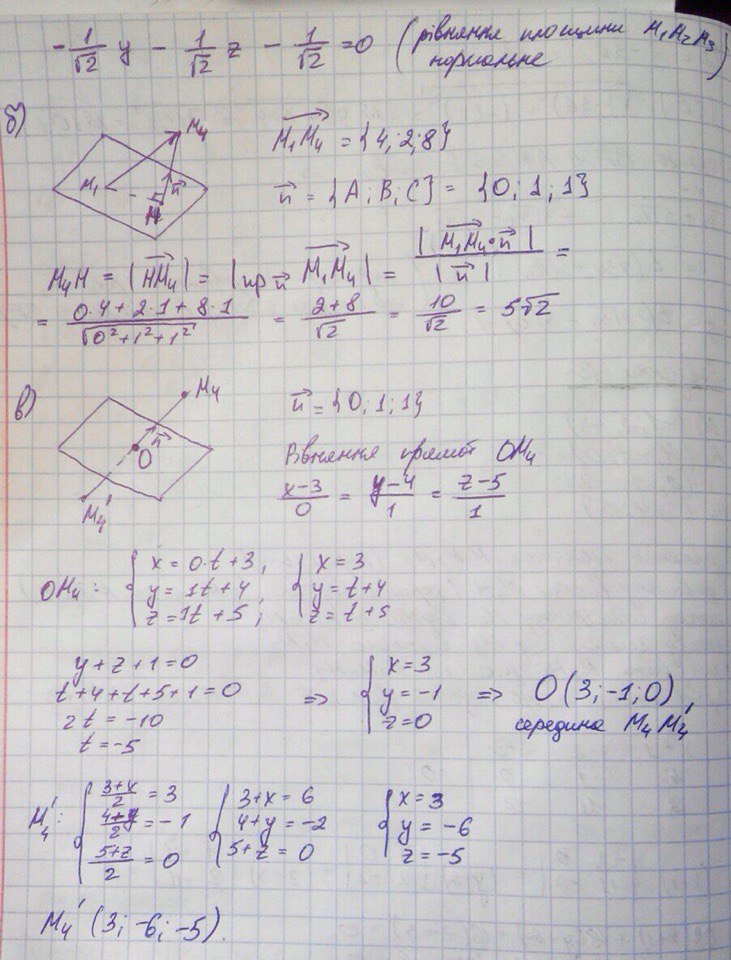 -1/√2 y - 1/√2 z - 1/√2 = 0 (рівняння площини M₁M₂M₃
нормальне)
б)
M₄
M₁
n⃗
H
M₁M₄ = {4; 2; 8}
n⃗ = {A; B; C} = {0; 1; 1}
M₄H = |HM₄| = |пр n⃗ M₁M₄| = |M₁M₄ · n⃗| / |n⃗| =
= (0·4 + 2·1 + 8·1) / √(0² + 1² + 1²) = (2+8)/√2 = 10/√2 = 5√2
в)
M₄
n⃗
O
M₄'
n⃗ = {0; 1; 1}
Рівняння прямої OM₄
(x-3)/0 = (y-4)/1 = (z-5)/1
OM₄: { x = 0·t+3, { x = 3
y = 1t+4, y = t+4
z = 1t+5; z = t+5
y+z+1=0
t+4+t+5+1=0
2t = -10
t = -5
=> { x = 3
y = -1
z = 0
=> O(3; -1; 0)
середина M₄M₄'
M₄': { (3+x)/2 = 3 { 3+x = 6 { x = 3
(4+y)/2 = -1 4+y = -2 y = -6
(5+z)/2 = 0 5+z = 0 z = -5
M₄' (3; -6; -5).